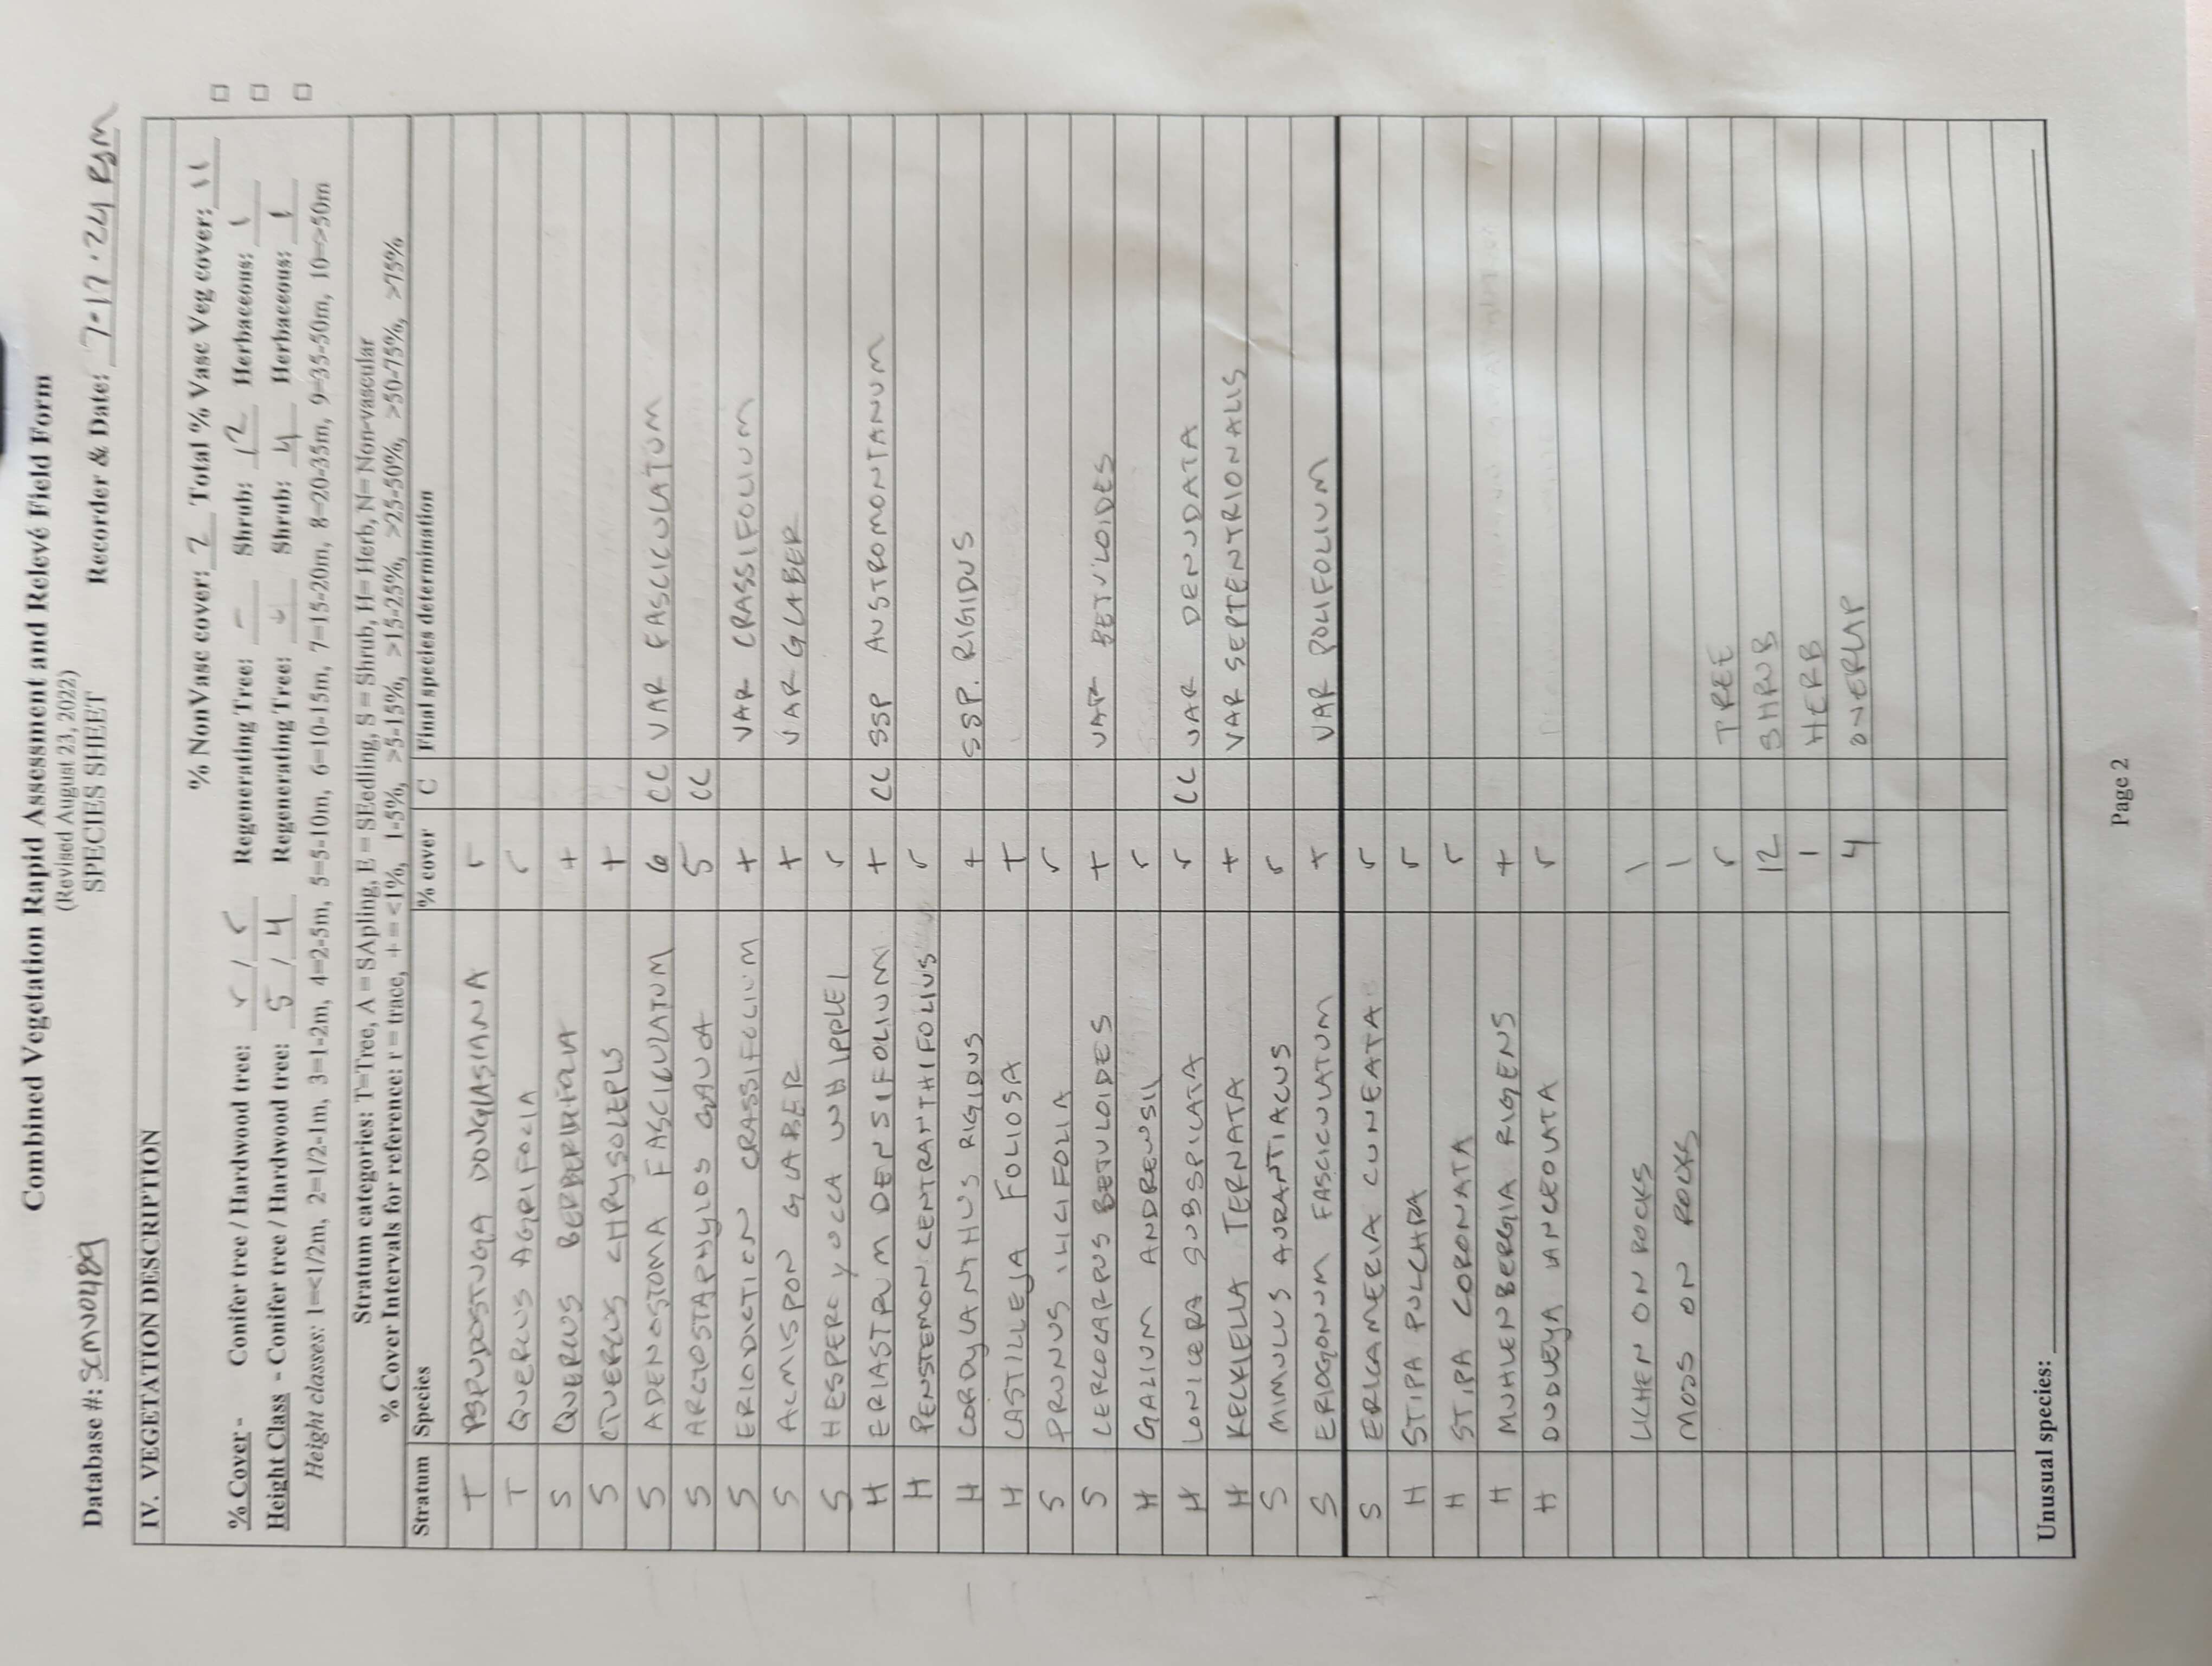 Combined Vegetation Rapid Assessment and Relevé Field Form
(Revised August 23, 2022)
SPECIES SHEET
Database #: SCMV0489 Recorder & Date: 7.17.24 RSM
IV. VEGETATION DESCRIPTION
% NonVasc cover: 2 Total % Vasc Veg cover: 11
% Cover - Conifer tree / Hardwood tree: r / r Regenerating Tree: – Shrub: 12 Herbaceous: 1
Height Class - Conifer tree / Hardwood tree: 5 / 4 Regenerating Tree: Shrub: 4 Herbaceous: 1
Height classes: 1=<1/2m, 2=1/2-1m, 3=1-2m, 4=2-5m, 5=5-10m, 6=10-15m, 7=15-20m, 8=20-35m, 9=35-50m, 10=>50m
Stratum categories: T=Tree, A = SApling, E = SEedling, S = Shrub, H= Herb, N= Non-vascular
% Cover Intervals for reference: r = trace, + = <1%, 1-5%, >5-15%, >15-25%, >25-50%, >50-75%, >75%
Stratum Species % cover C Final species determination
T PSPUDOSTUGA DOUGLASIANA r
T QUERCUS AGRIFOLIA r
S QUERCUS BERBERIFOLIA +
S QUERCUS CHRYSOLEPIS +
S ADENOSTOMA FASCICULATUM 6 CC VAR FASCICULATUM
S ARCTOSTAPHYLOS GLAUCA 5 CC
S ERIODICTION CRASSIFOLIUM + VAR CRASSIFOLIUM
S ACMISPON GLABER + VAR GLABER
S HESPEROYUCCA WHIPPLEI r
H ERIASTRUM DENSIFOLIUM + CC SSP AUSTROMONTANUM
H PENSTEMON CENTRANTHIFOLIUS r
H CORDYLANTHUS RIGIDUS + SSP. RIGIDUS
H CASTILLEJA FOLIOSA +
S PRUNUS ILICIFOLIA r
S CERCOCARPUS BETULOIDES + VAR BETULOIDES
H GALIUM ANDREWSII r
H LONICERA SUBSPICATA r CC VAR DENUDATA
H KECKIELLA TERNATA + VAR SEPTENTRIONALIS
S MIMULUS AURANTIACUS r
S ERIOGONUM FASCICULATUM + VAR POLIFOLIUM
S ERICAMERIA CUNEATA r
H STIPA PULCHRA r
H STIPA CORONATA r
H MUHLENBERGIA RIGENS +
H DUDLEYA LANCEOLATA r
LICHEN ON ROCKS 1
MOSS ON ROCKS 1
r TREE
12 SHRUB
1 HERB
4 OVERLAP
Unusual species:
Page 2